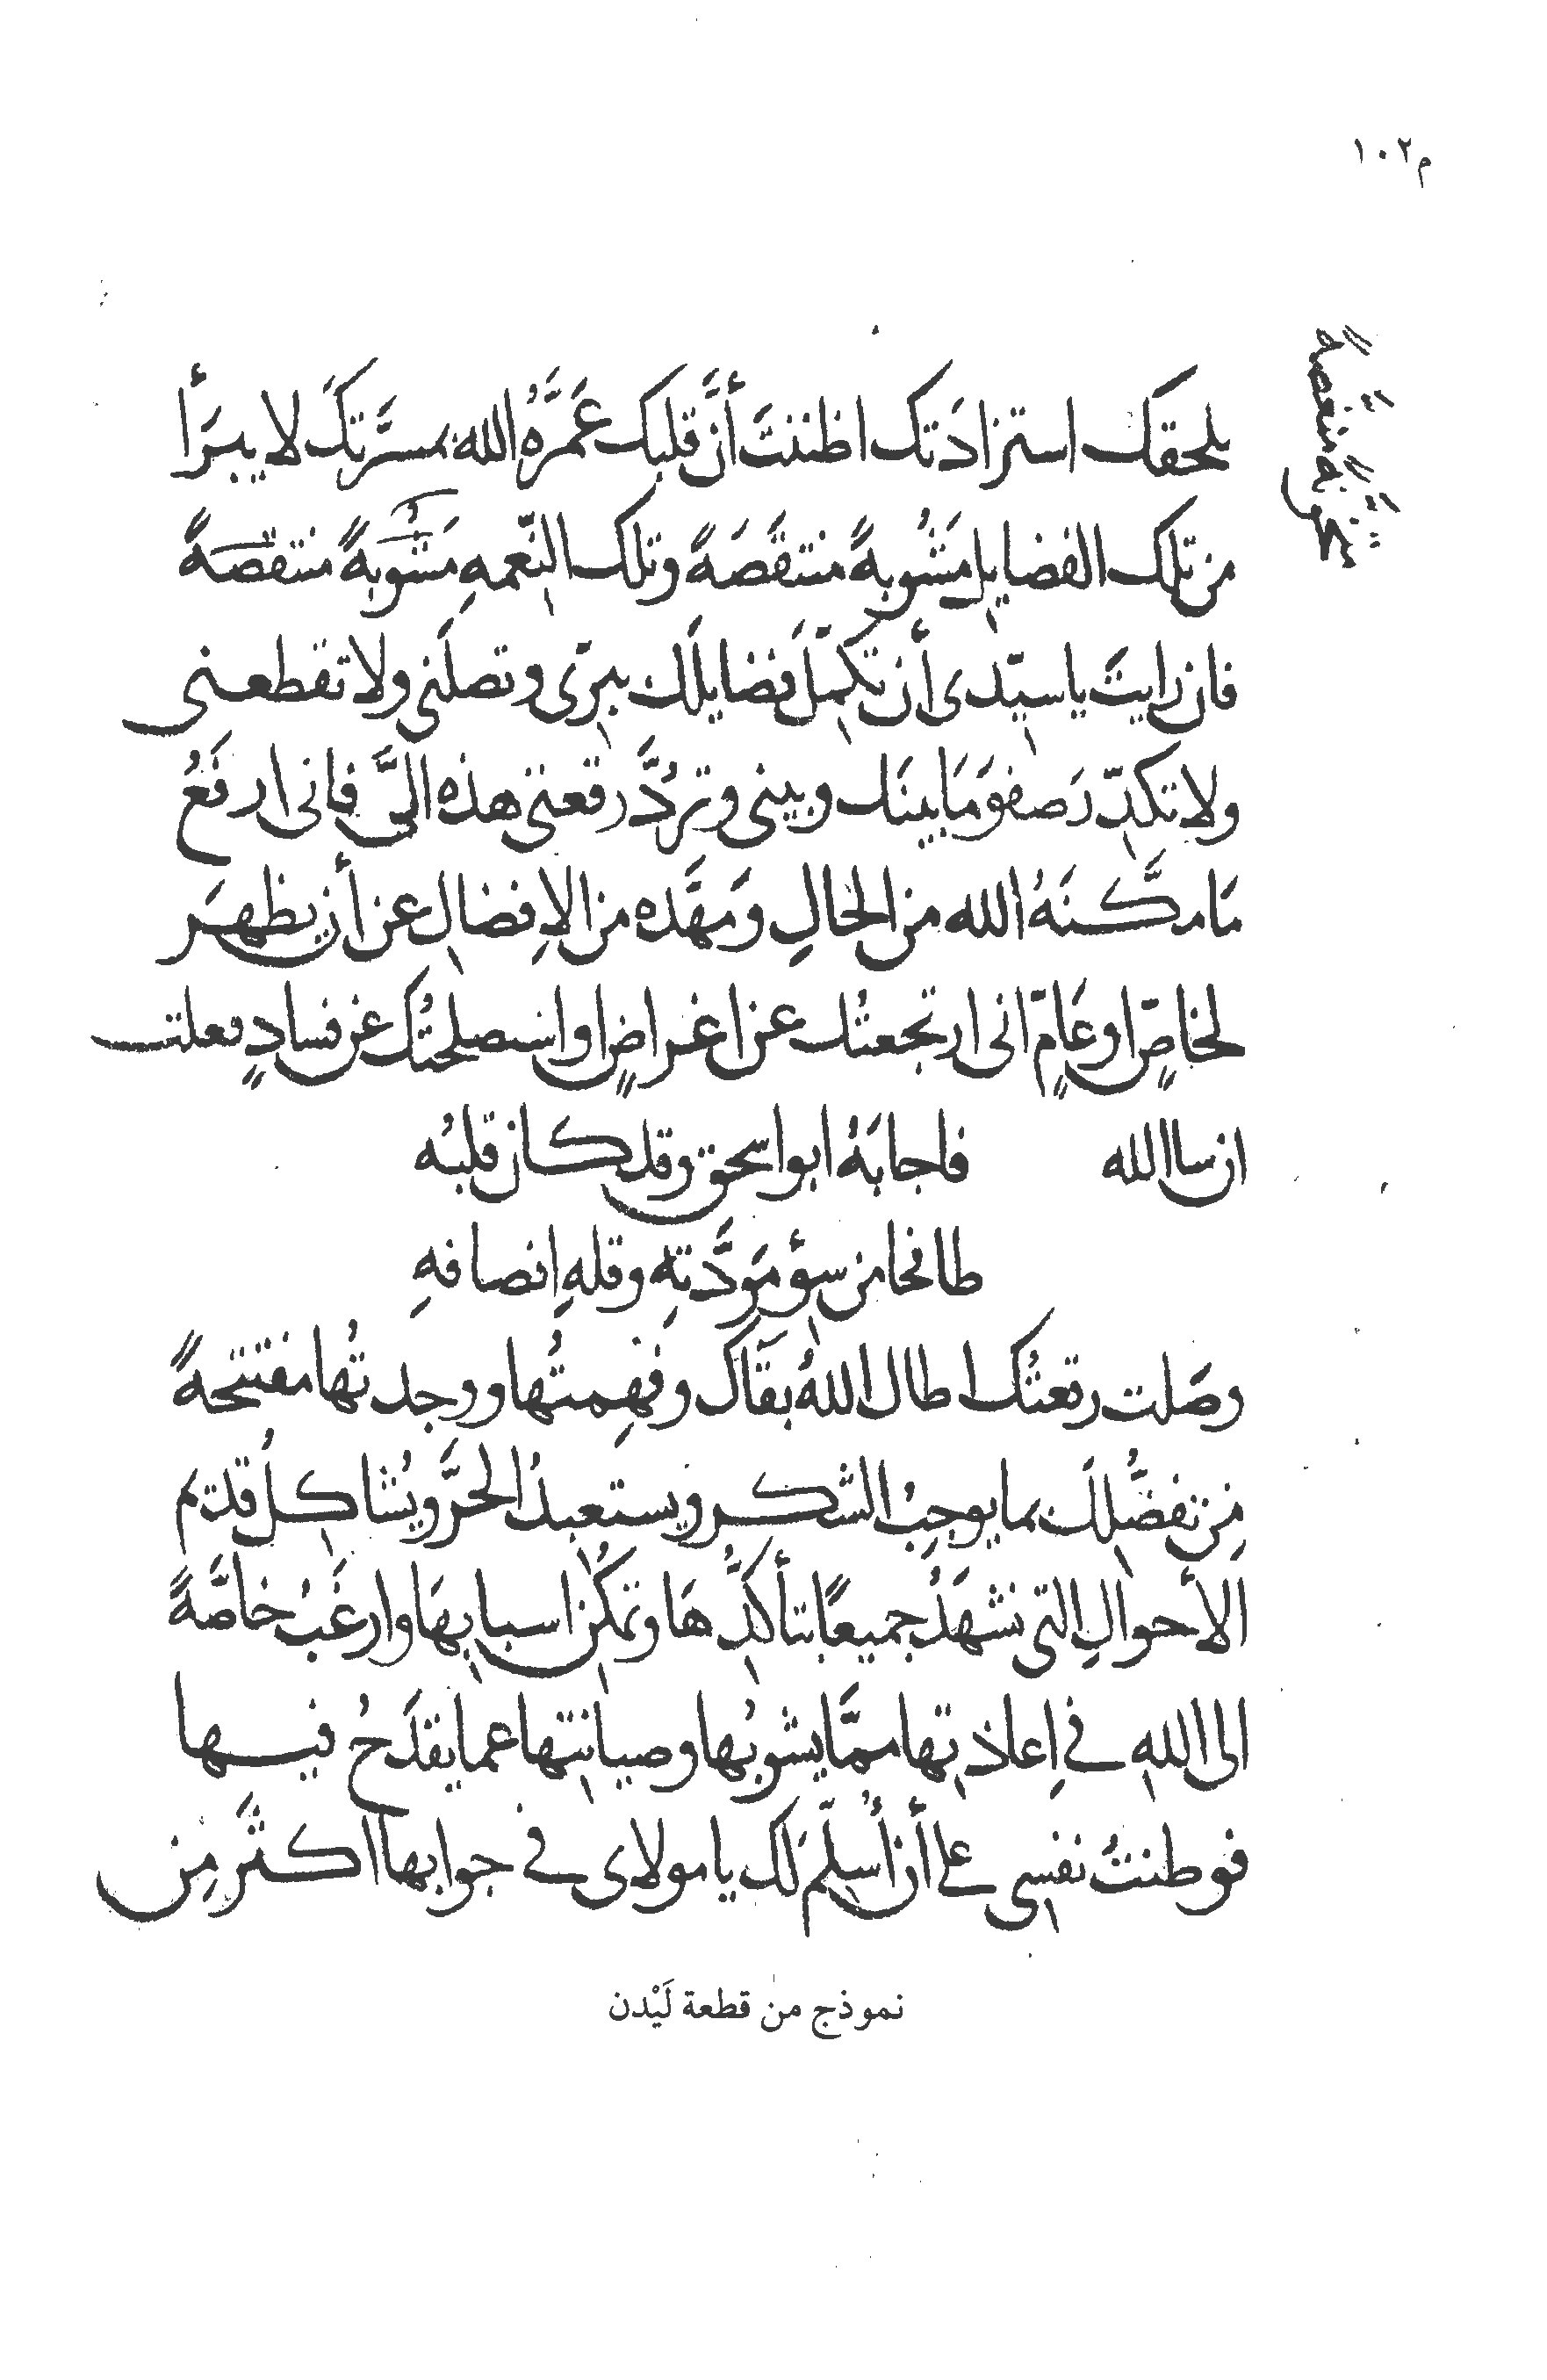 م١٠٢
بلحقك استزادتك اظننتَ أنَّ قلبك عَمَّرَهُ الله بمسرَّتكَ لا يبرَأ
من تلك الفضايل مَشُوبةً منتقَّصَةً وتلك النِّعمهِ مَشُوبَةً منتقصَةً
فان رايتَ يا سيّدى أن تكمِّلَ فضايلَك ببرّى وتصلَنى ولا تقطعنى
ولا تكدّرَ صفوَ مَا بينَك وبينى وتردَّ رقعتى هذه الىَّ فانى ارفَعُ
مَا مكَّنَهُ الله من الحالِ ومَهَّده من الاِفضالِ عن أن يظهَر
لخاصٍّ او عَامٍّ انى ارتجعتُك عن اغراضٍ او استصلحتُك عن فسادٍ فعلت
ان شا الله فاجابَهُ ابو اسحق وقد كان قلبُه
طافحا من سؤ مَوَدَّتهِ وقلهِ انصافهِ
وصَلت رقعتُك اطال اللهُ بقآك وفهِمتُها ووجدتُها مفتتحةً
مِن تفضُّلك بما يوجبُ الشكر ويستعبدُ الحرَّ ويُشاكلُ قديم
الأحوالِ التى نشهَدُ جميعًا بتأكّدِهَا وتمكُّن اسبابهَا وارغَبُ خاصَّةً
الى اللهِ فى اِعاذتها ممَّا يشوبُها وصيانتها عما يقدَحُ فيها
فوطنتُ نفسى على أن أُسلِّمَ لك يا مولاى فى جوابها اكثرَ مِن
نموذج من قطعة لَيْدن